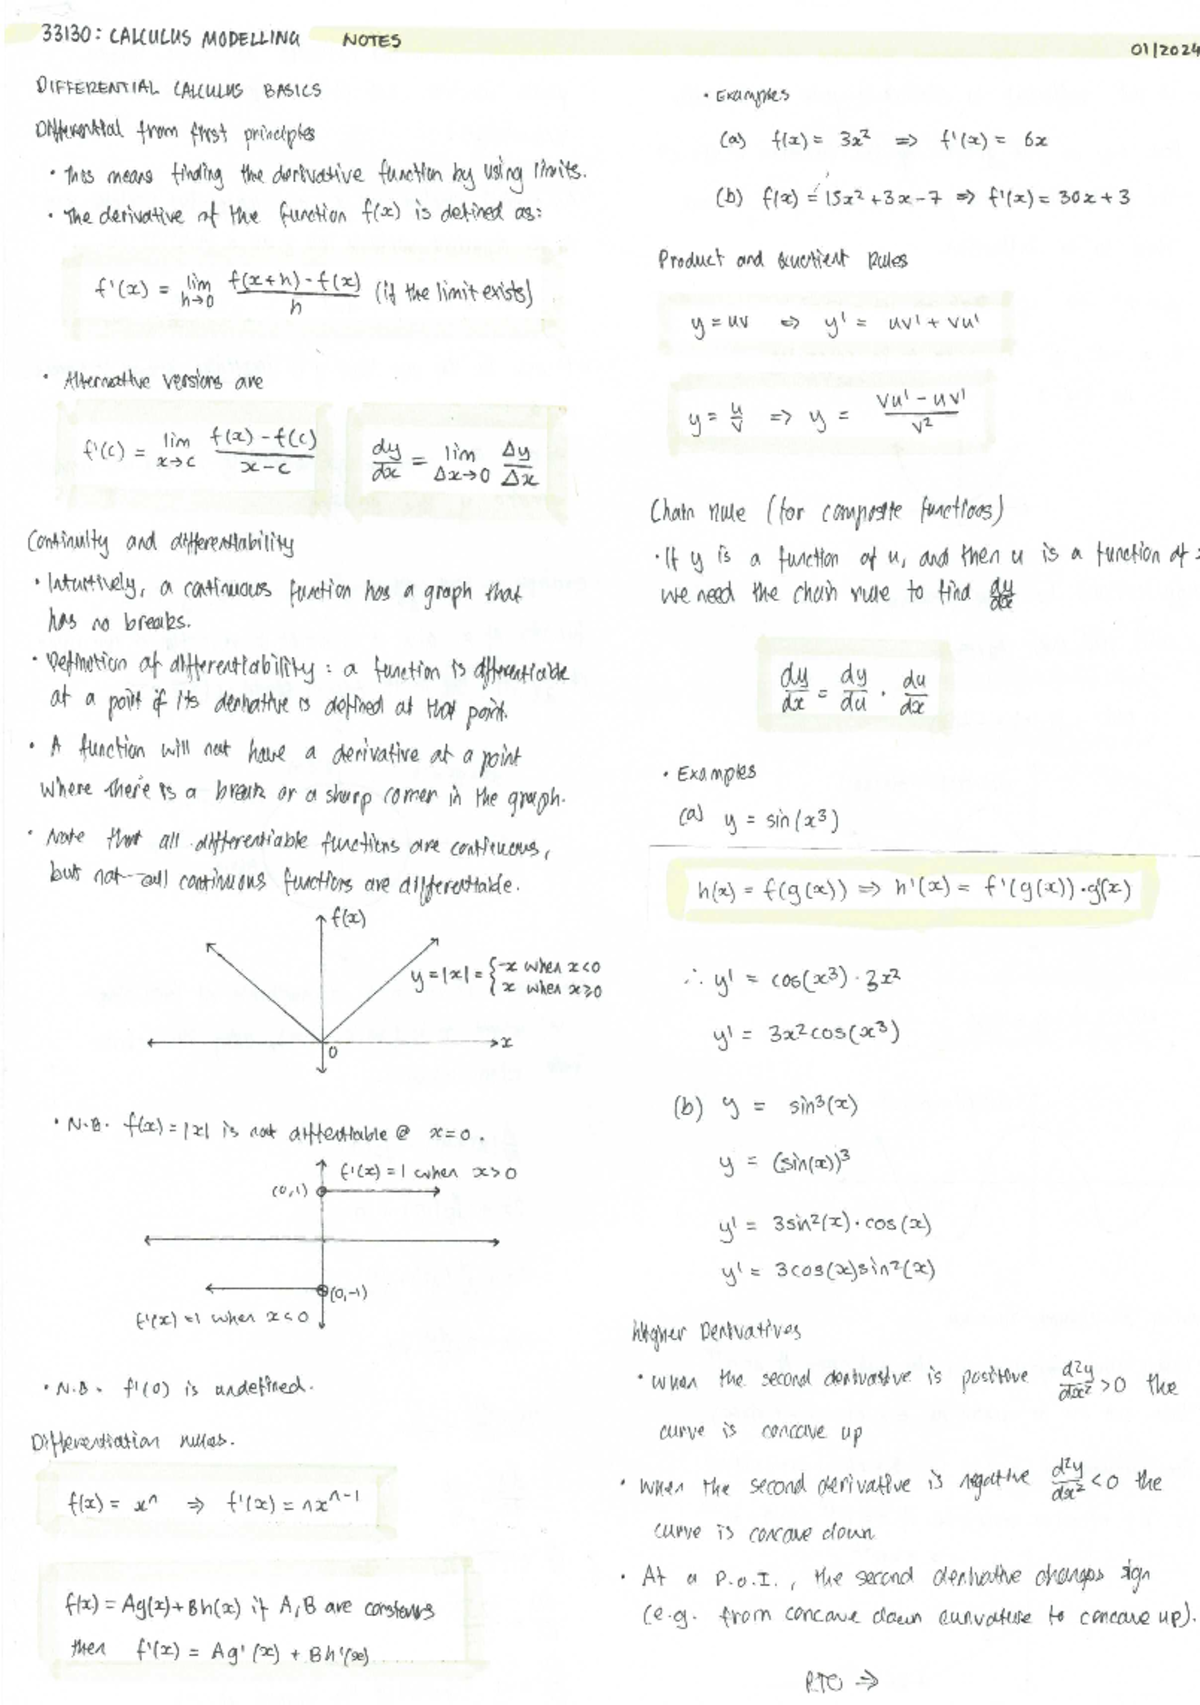 33130: CALCULUS MODELLING NOTES
01/2024
DIFFERENTIAL CALCULUS BASICS
Differential from first principles
• This means finding the derivative function by using limits.
• The derivative of the function f(x) is defined as:
f'(x) = lim h→0 f(x+h)-f(x) / h (if the limit exists)
• Alternative versions are
f'(c) = lim x→c f(x)-f(c) / x-c
dy/dx = lim Δx→0 Δy/Δx
Continuity and differentiability
• Intuitively, a continuous function has a graph that
has no breaks.
• Definition of differentiability: a function is differentiable
at a point if its derivative is defined at that point.
• A function will not have a derivative at a point
where there is a break or a sharp corner in the graph.
• Note that all differentiable functions are continuous,
but not all continuous functions are differentiable.
f(x)
y = |x| = { -x when x<0
x when x≥0
x
0
• N.B. f(x) = |x| is not differentiable @ x=0.
f'(x) = 1 when x>0
(0,1)
(0,-1)
f'(x) =1 when x<0
• N.B. f'(0) is undefined.
Differentiation rules.
f(x) = xⁿ ⇒ f'(x) = nxⁿ⁻¹
f(x) = Ag(x)+Bh(x) if A,B are constants
then f'(x) = Ag'(x) + Bh'(x)
• Examples
(a) f(x) = 3x² ⇒ f'(x) = 6x
(b) f(x) = 15x²+3x-7 ⇒ f'(x) = 30x+3
Product and Quotient Rules
y = uv ⇒ y' = uv' + vu'
y = u/v ⇒ y = vu' - uv' / v²
Chain rule (for composite functions)
• If y is a function of u, and then u is a function of
we need the chain rule to find dy/dx
dy/dx = dy/du · du/dx
• Examples
(a) y = sin(x³)
h(x) = f(g(x)) ⇒ h'(x) = f'(g(x))·g'(x)
∴ y' = cos(x³) · 3x²
y' = 3x²cos(x³)
(b) y = sin³(x)
y = (sin(x))³
y' = 3sin²(x)·cos(x)
y' = 3cos(x)sin²(x)
Higher Derivatives
• When the second derivative is positive d²y/dx² >0 the
curve is concave up
• When the second derivative is negative d²y/dx² <0 the
curve is concave down
• At a P.O.I., the second derivative changes sign
(e.g. from concave down curvature to concave up).
PTO →